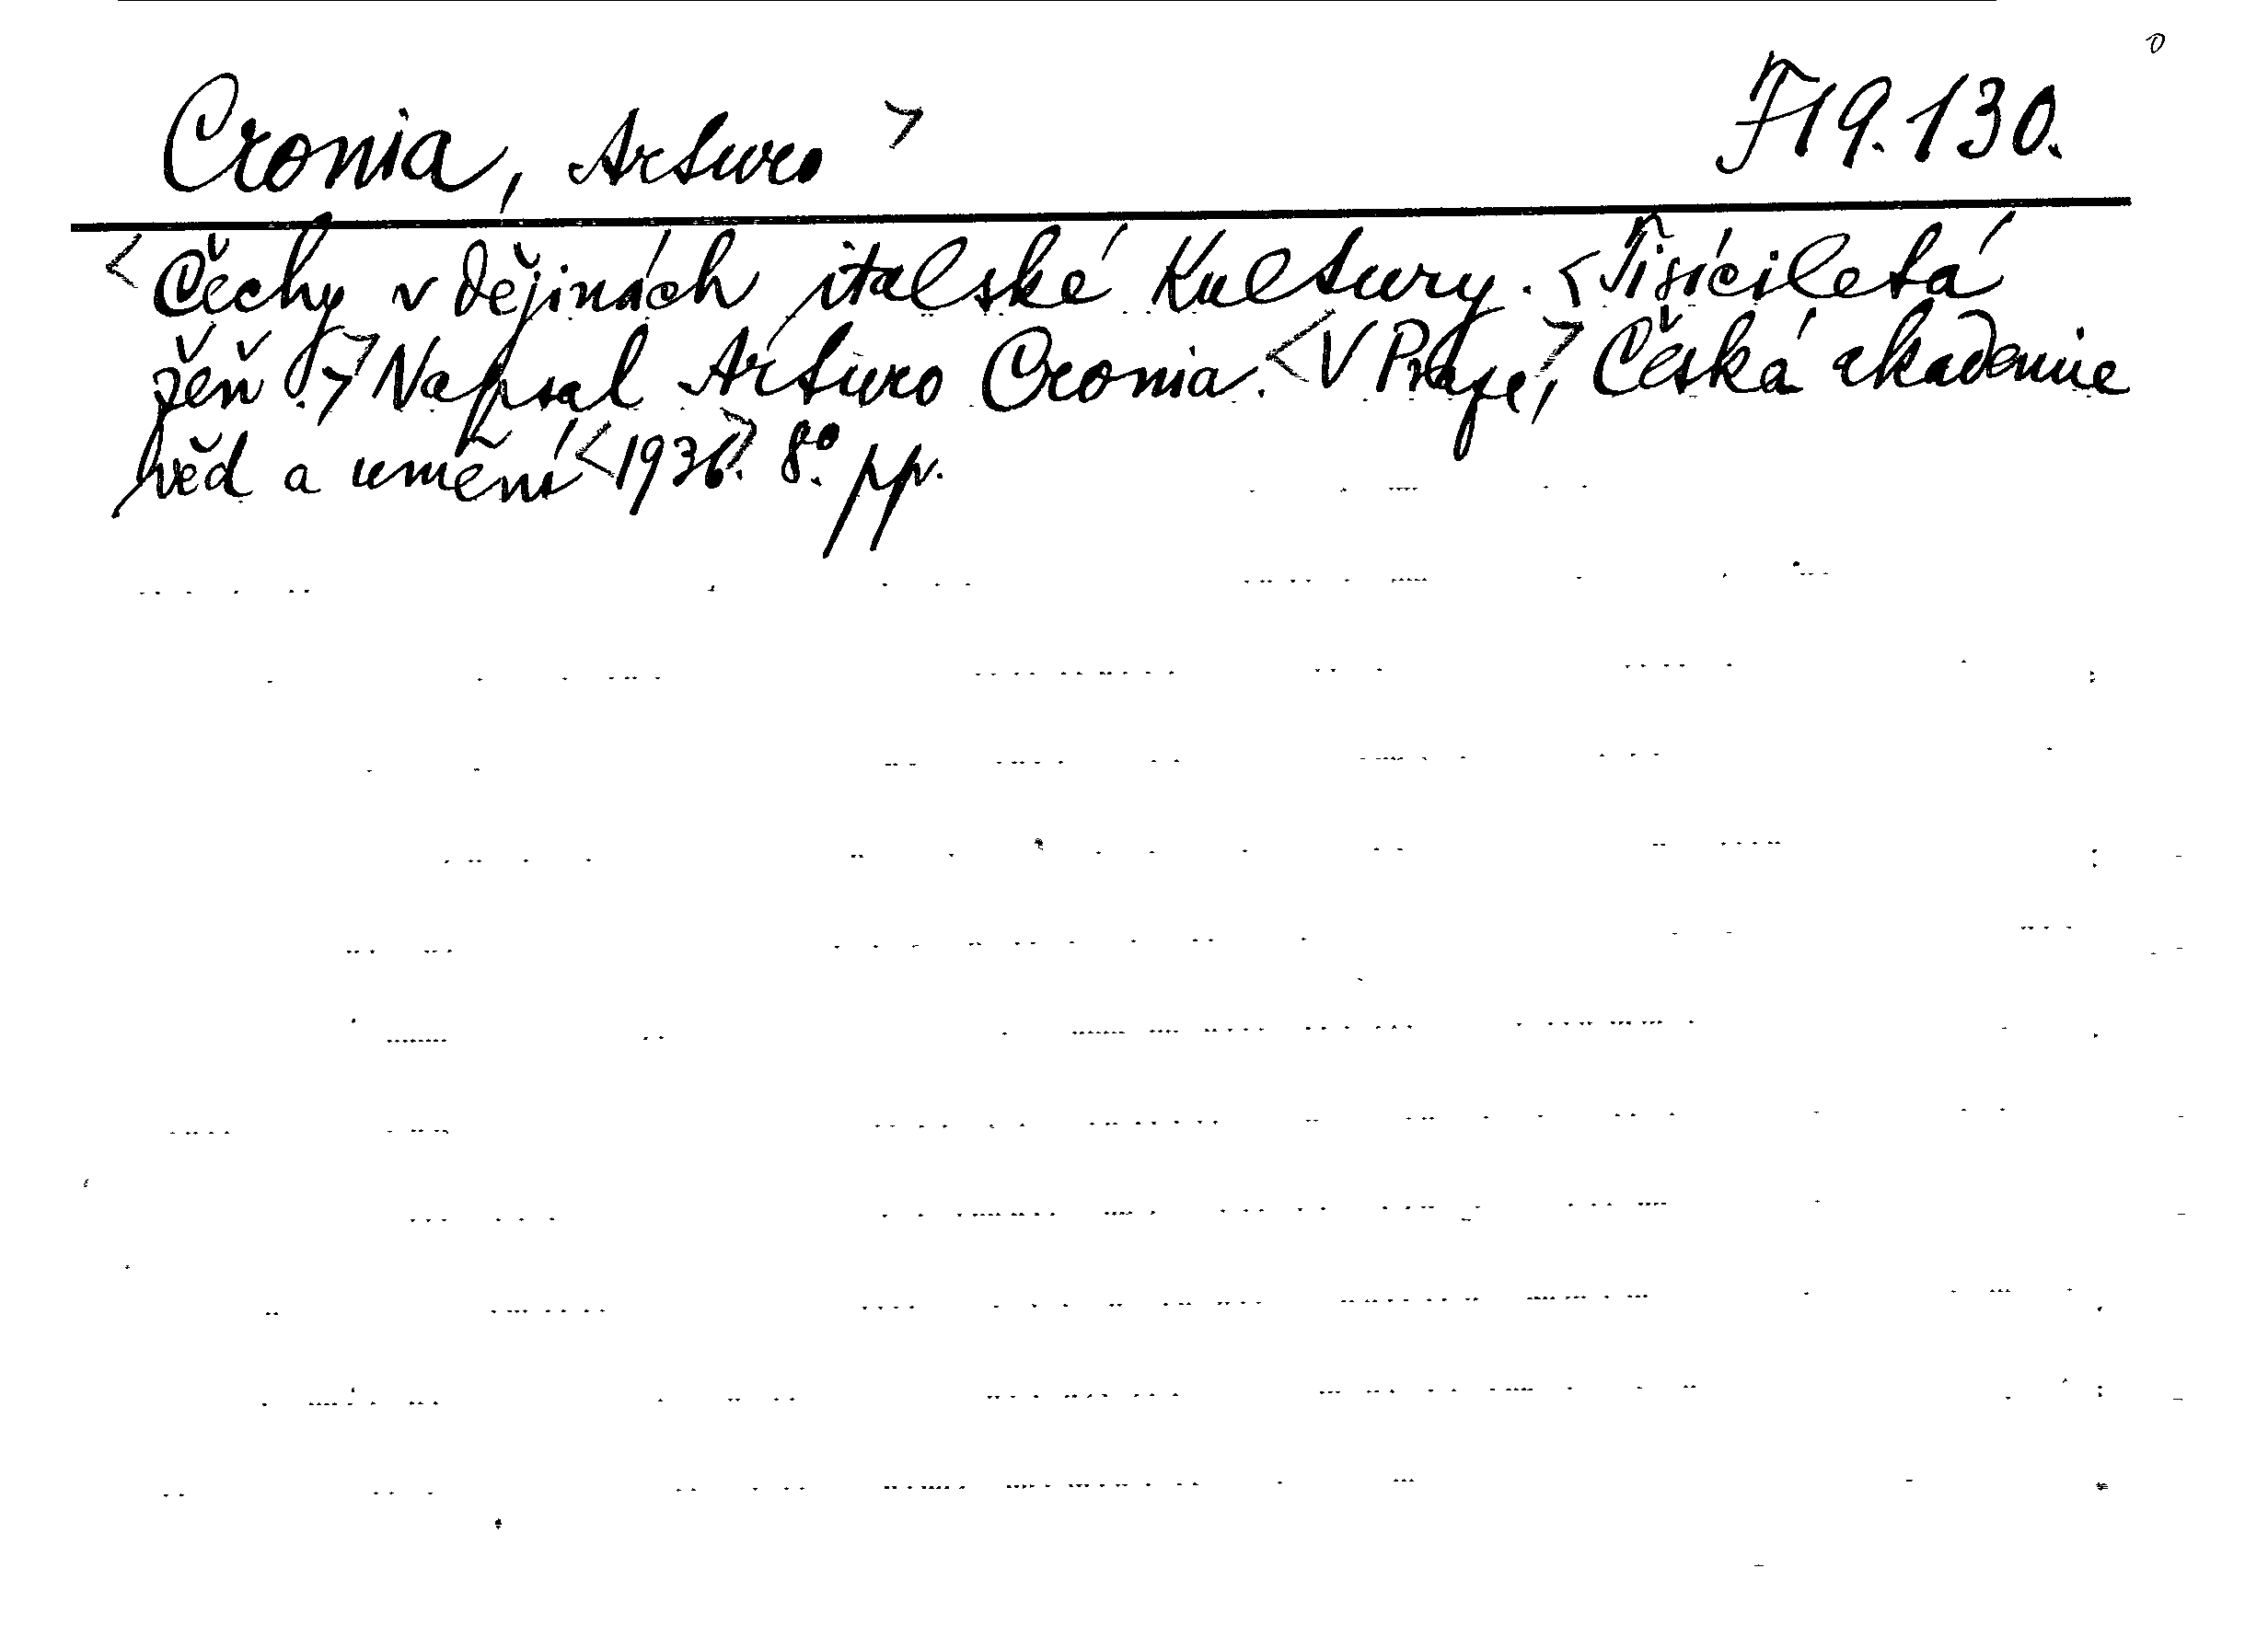 Cronia, Arturo > F19.130.
<Čechy v dějinách italské Kultury. <Tisíciletá
žeň.> Napsal Arturo Cronia. <V Praze,> Česká akademie
věd a umění <1936>. 8° pp.